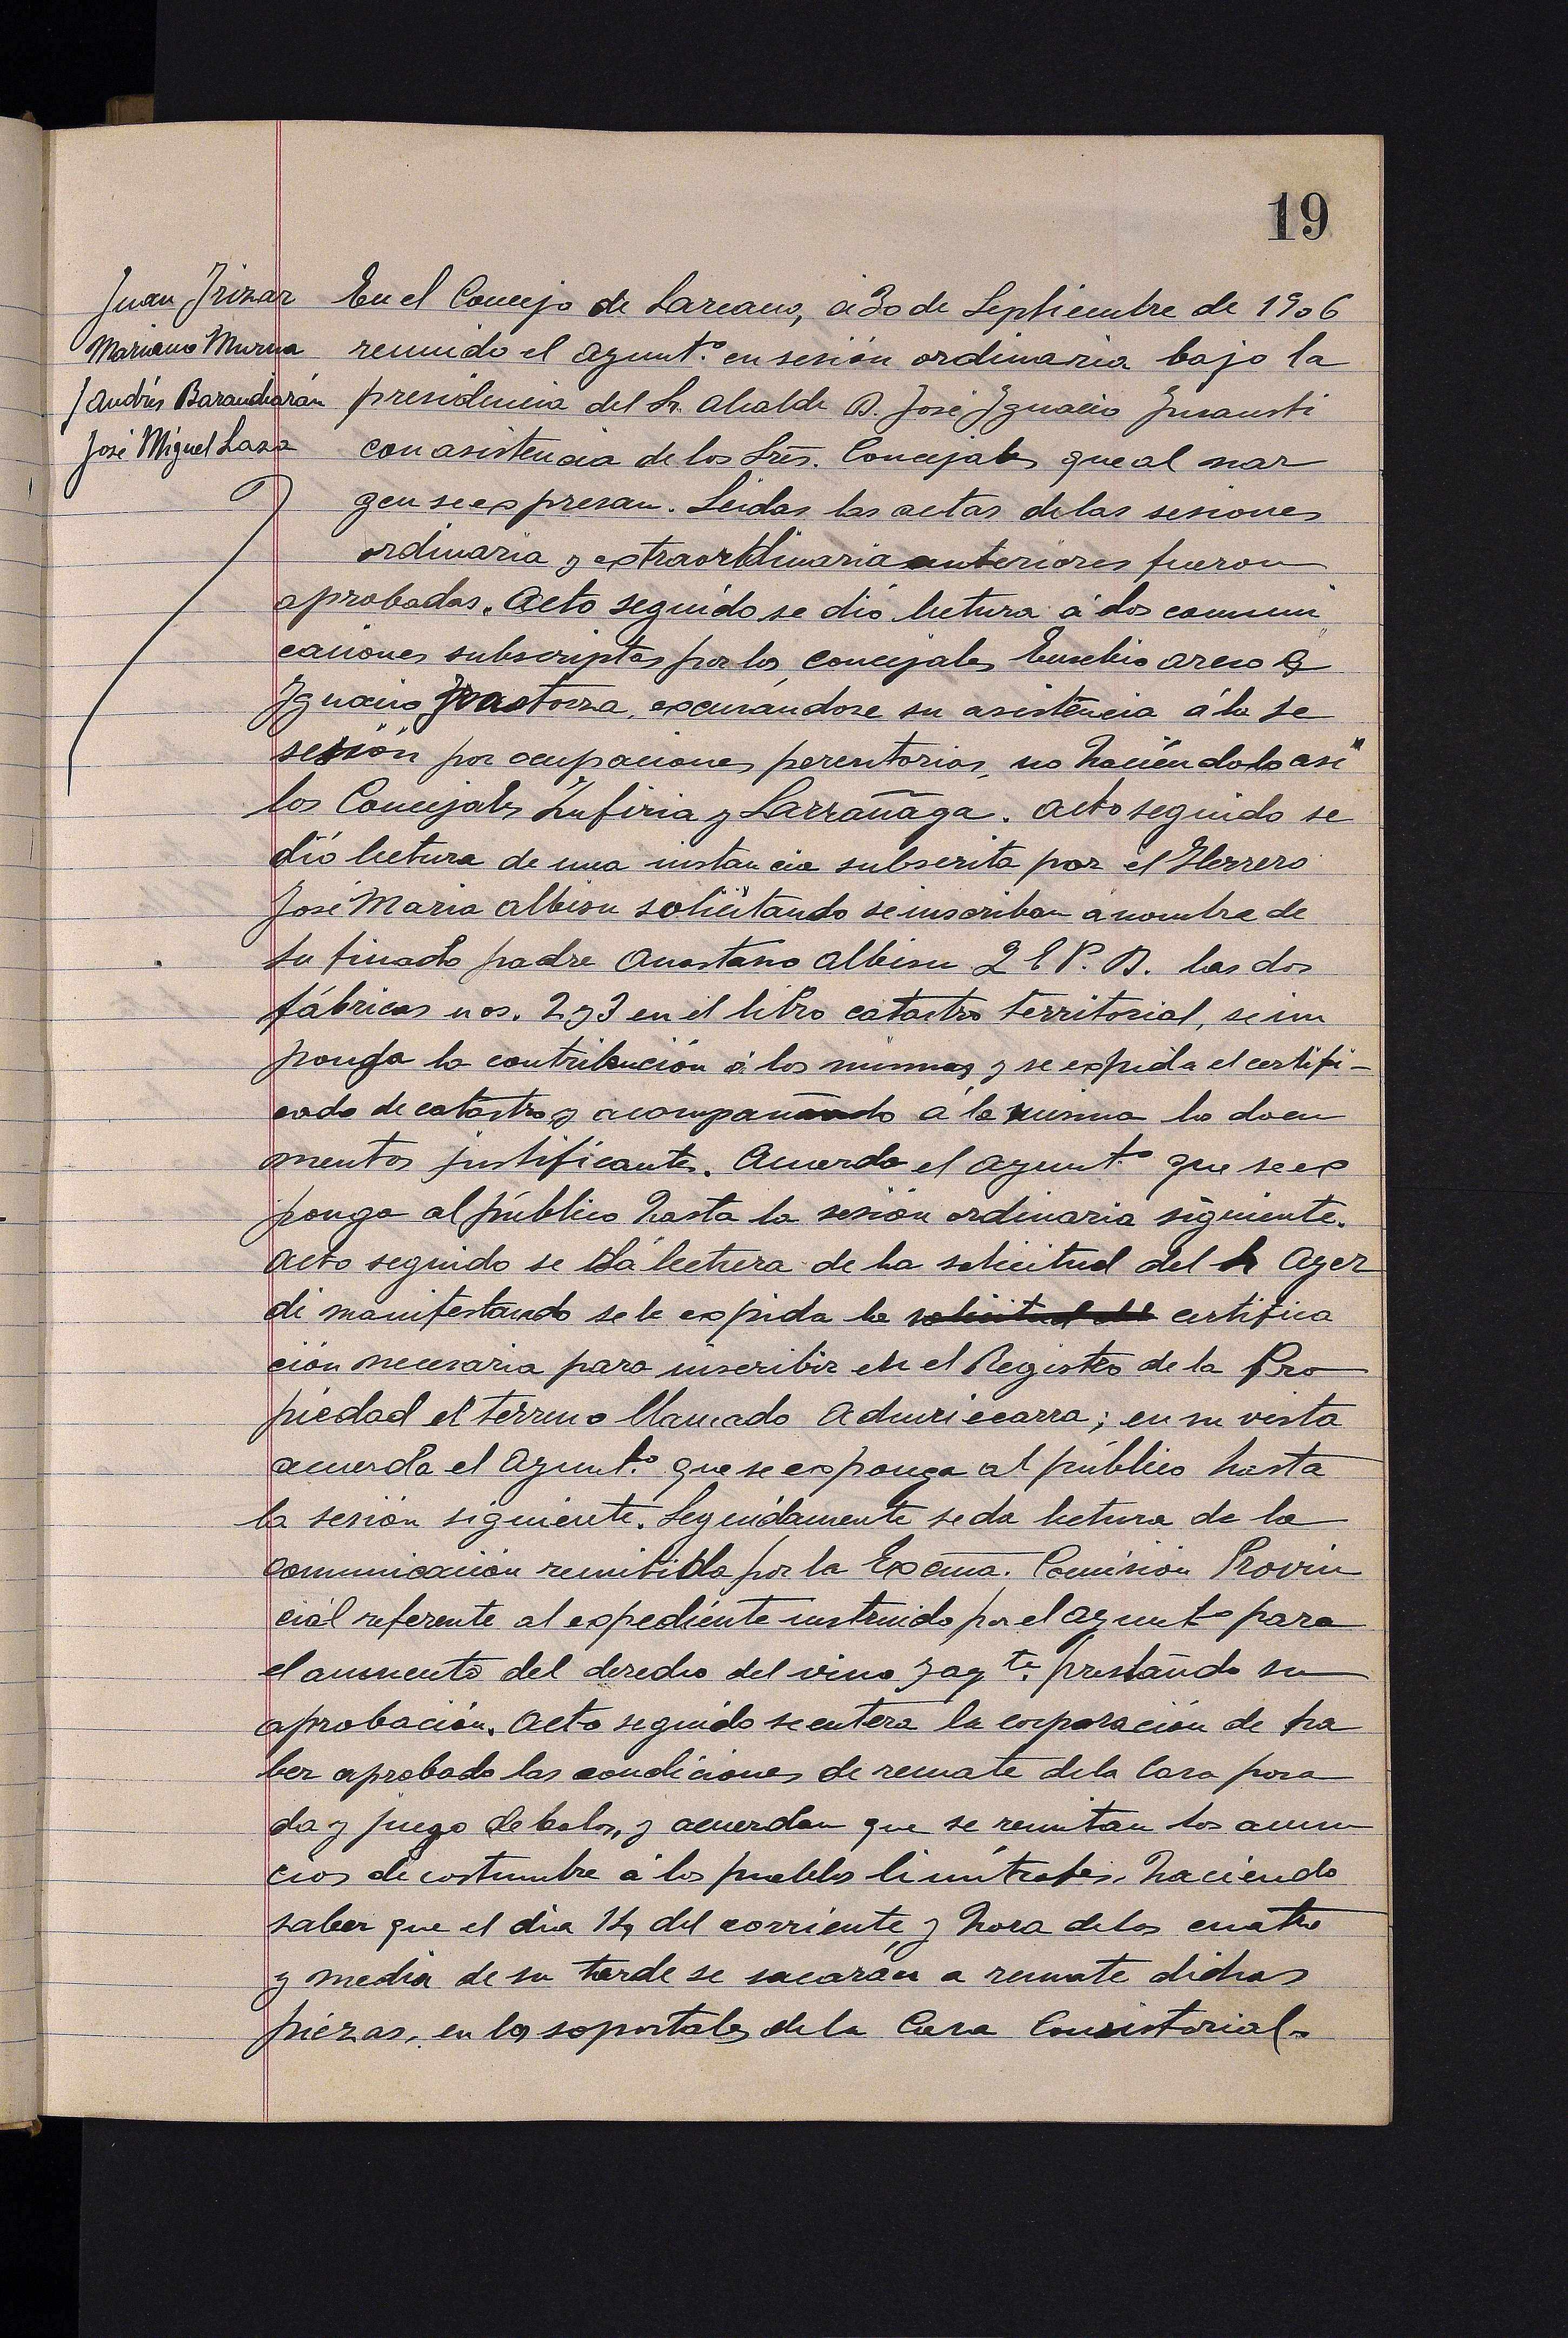 19
Juan Irizar
Mariano Murua
J Andrés Barandiarán
José Miguel Lasa
En el Concejo de Larcano, á 30 de Septiembre de 1906
reunido el ayunt.º en sesión ordinaria bajo la
presidencia del Sr. Alcalde D. José Ignacio Insausti
con asistencia de los Sres. Concejales que al mar
gen se expresan. Leidas las actas de las sesiones
ordinaria y extraordinaria anteriores fueron
aprobadas. Acto seguido se dió lectura á dos comuni
caciones subscriptas por los concejales Eusebio Areso é
Ignacio excusándose su asistencia á la se
sesión por ocupaciones perentorias, no haciéndolo asi
los Concejales Zufiria y Larrañaga. Acto seguido se
dió lectura de una instancia subscrita por el Herrero
José Maria Albisu solicitando se inscriban á nombre de
su finado padre Anastasio Albisu Q. E. P. D. las dos
fábricas nos. 2 y 3 en el libro catastro territorial, se im
ponga la contribución á los mismos y se expida el certifi-
cado de catastro y acompañando á la misma los docu
mentos justificantes. Acuerda el ayunt.º que se ex
ponga al público hasta la sesión ordinaria siguiente.
Acto seguido se dá lectura de la solicitud del Sr Ayer
di manifestando se le expida la solicitud del certifica
ción necesaria para inscribir en el Registro de la Pro
piedad el terreno llamado Aduriecarra; en su vista
acuerda el Ayunt.º que se exponga al público hasta
la sesión siguiente. Seguidamente se da lectura de la
comunicación remitida por la Excma. Comisión Provin
cial referente al expediente instruido por el ayunt.º para
el aumento del derecho del vino y ag.te prestando su
aprobación. Acto seguido se entera la corporación de ha
ber aprobado las condiciones de remate de la Casa posa
da y juego de bolos, y acuerdan que se remitan los anun
cios de costumbre á los pueblos limitrofes, haciendo
saber que el dia 14, del corriente, y hora de las cuatro
y media de su tarde se sacarán a remate dichas
piezas, en los soportales de la Casa Consistorial.